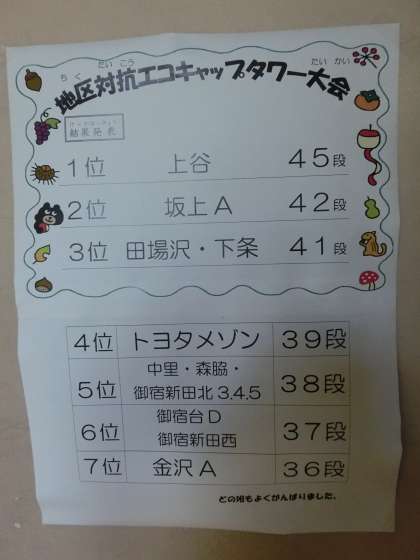 ちく たいこう たいかい
地区対抗エコキャップタワー大会
結果発表
1位 上谷 45段
2位 坂上A 42段
3位 田場沢・下条 41段
4位 トヨタメゾン 39段
5位 中里・森脇・
御宿新田北3.4.5 38段
6位 御宿台D
御宿新田西 37段
7位 金沢A 36段
どの組もよくがんばりました。